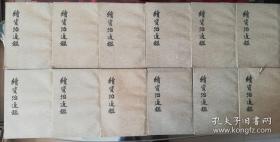 續資治通鑑
續資治通鑑
續資治通鑑
續資治通鑑
續資治通鑑
續資治通鑑
續資治通鑑
續資治通鑑
續資治通鑑
續資治通鑑
續資治通鑑
續資治通鑑